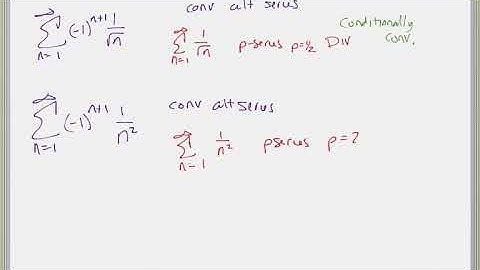 ∞ Σ n=1 (-1)^(n+1) 1/√n conv alt series
∞ Σ n=1 1/√n p-series p=½ DIV
Conditionally
Conv.
∞ Σ n=1 (-1)^(n+1) 1/n² conv alt series
∞ Σ n=1 1/n² p series p=2